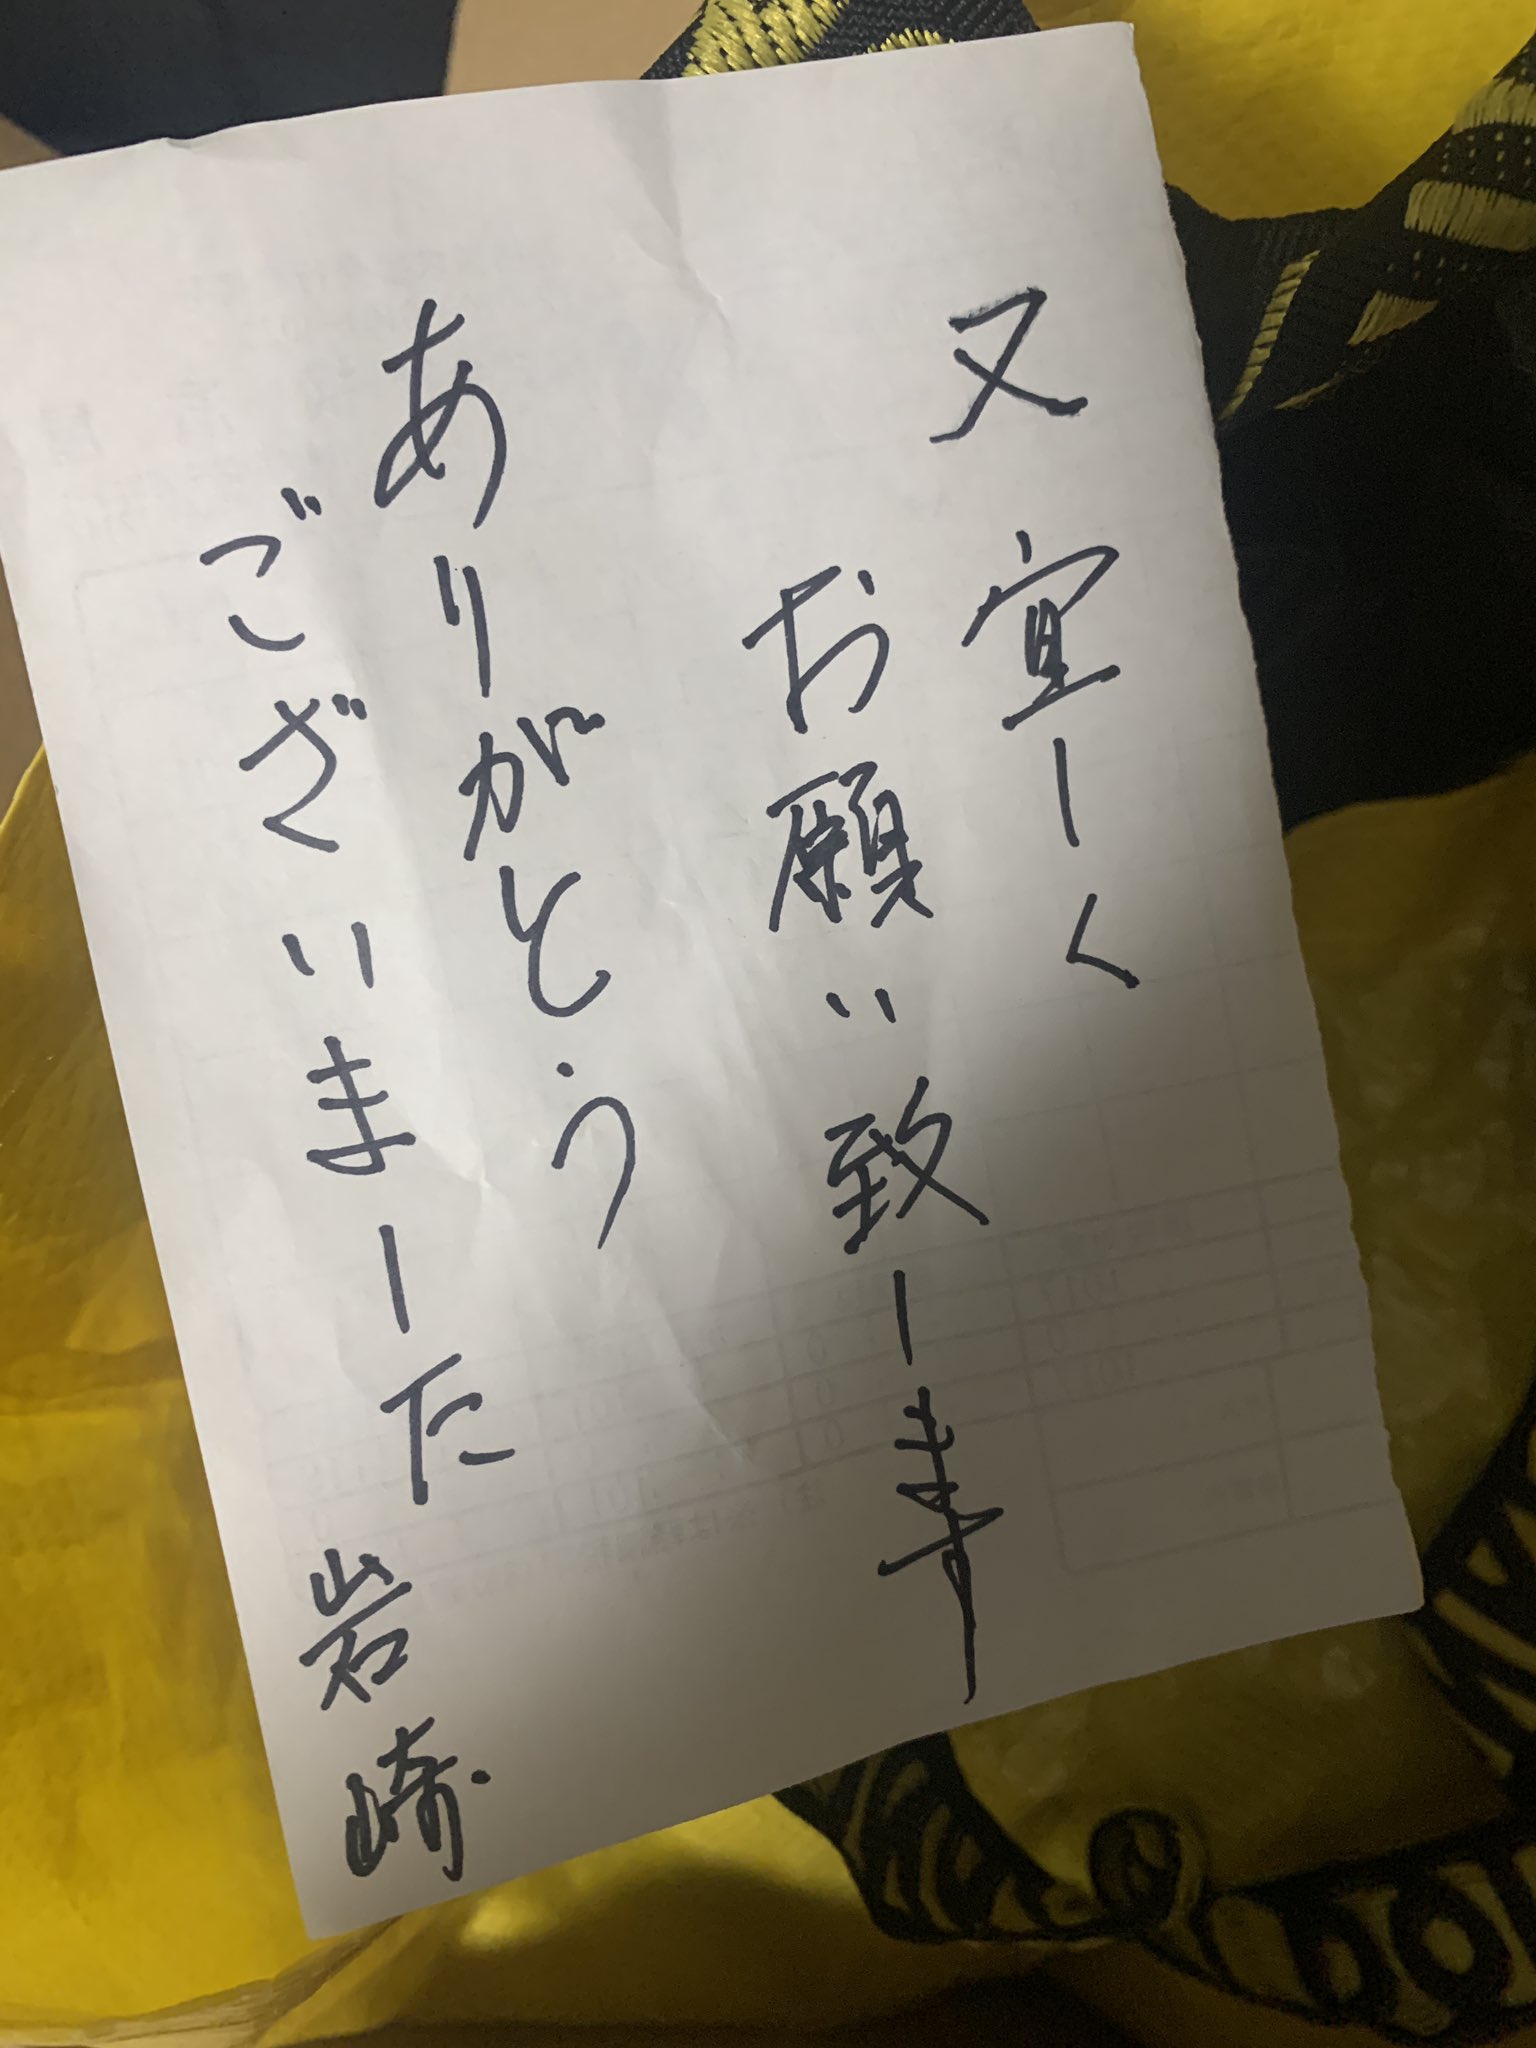 又宜しく
お願い致します
ありがとう
ございました
岩崎